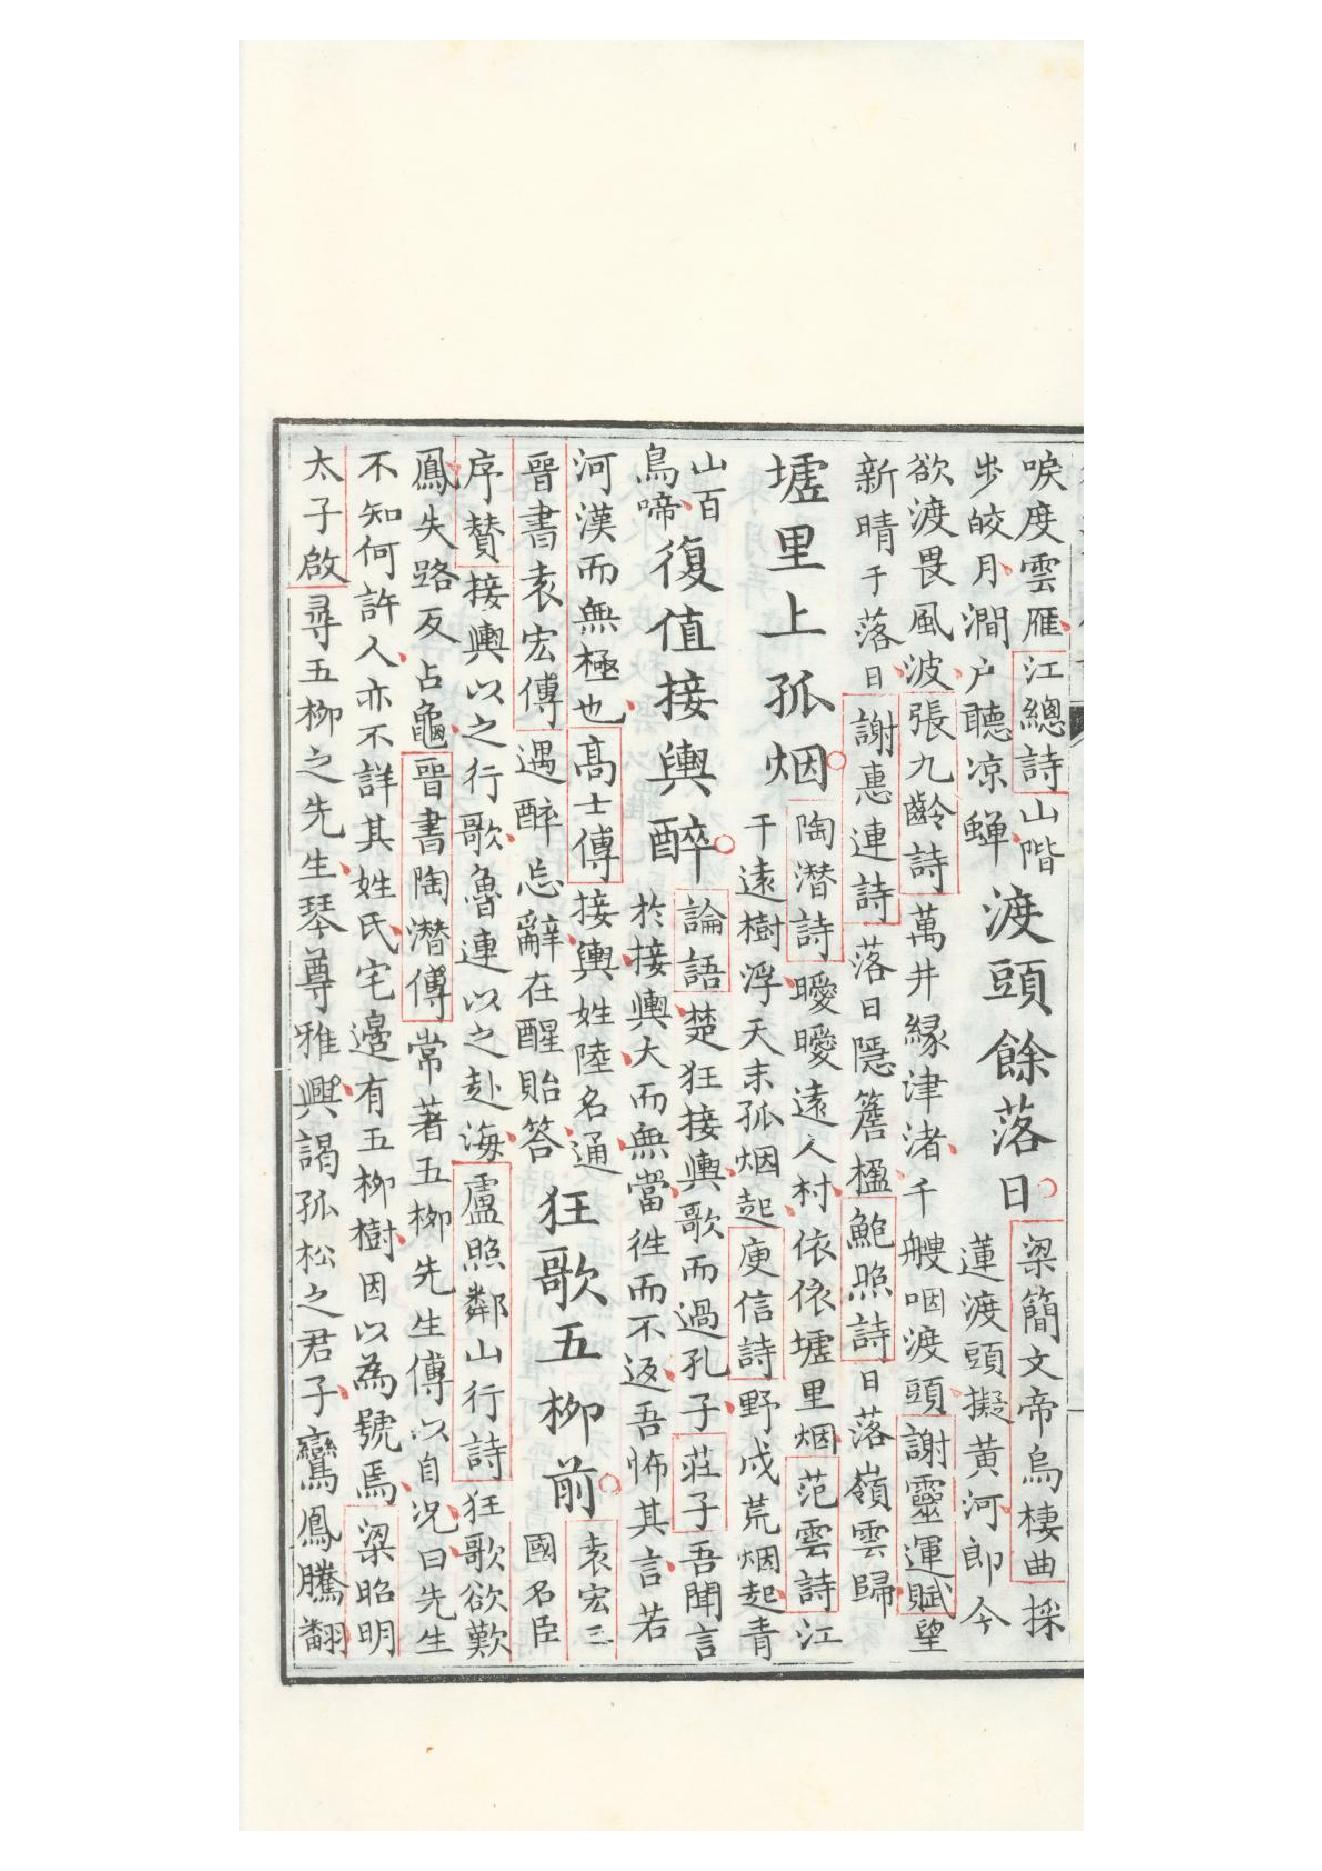 唳度雲雁江總詩山階
步皎月澗户聽凉蟬
渡頭餘落日
梁簡文帝烏棲曲採
蓮渡頭擬黄河郎今
欲渡畏風波張九齡詩萬井緣津渚千艘咽渡頭謝靈運賦望
新晴于落日謝惠連詩落日隱簷楹鮑照詩日落嶺雲歸
墟里上孤烟
陶潜詩曖曖遠人村依依墟里烟范雲詩江
干遠樹浮天末孤烟起庾信詩野戍荒烟起青
山百
鳥啼
復值接輿醉
論語楚狂接輿歌而過孔子莊子吾聞言
於接輿大而無當徃而不返吾怖其言若
河漢而無極也高士傳接輿姓陸名通
晉書袁宏傳遇醉忘辭在醒貽答
狂歌五栁前
袁宏三
國名臣
序贊接輿以之行歌魯連以之赴海盧照鄰山行詩狂歌欲歎
鳳失路反占龜晉書陶潜傳常著五栁先生傳以自况曰先生
不知何許人亦不詳其姓氏宅邊有五栁樹因以為號焉梁昭明
太子啟尋五栁之先生琴尊雅興謁孤松之君子鸞鳳騰翻